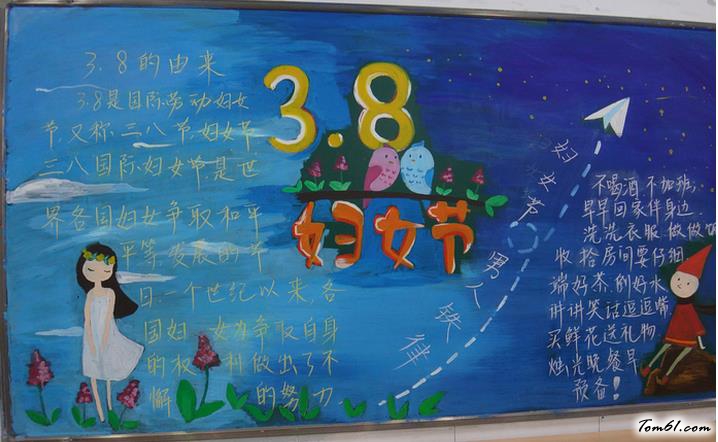 3.8的由来
3.8是国际劳动妇女
节,又称三八节,妇女节
三八国际妇女节是世
界各国妇女争取和平
平等,发展的节
日.一个世纪以来,各
国妇女为争取自身
的权利做出了不
懈的努力
3.8
妇女节
妇女节
男人
不喝酒不加班,
早早回家伴身边.
洗洗衣服做做饭
收拾房间要仔细
端好茶,倒好水
讲讲笑话逗逗嘴
买鲜花送礼物
烛光晚餐早
预备!
Tom61.com